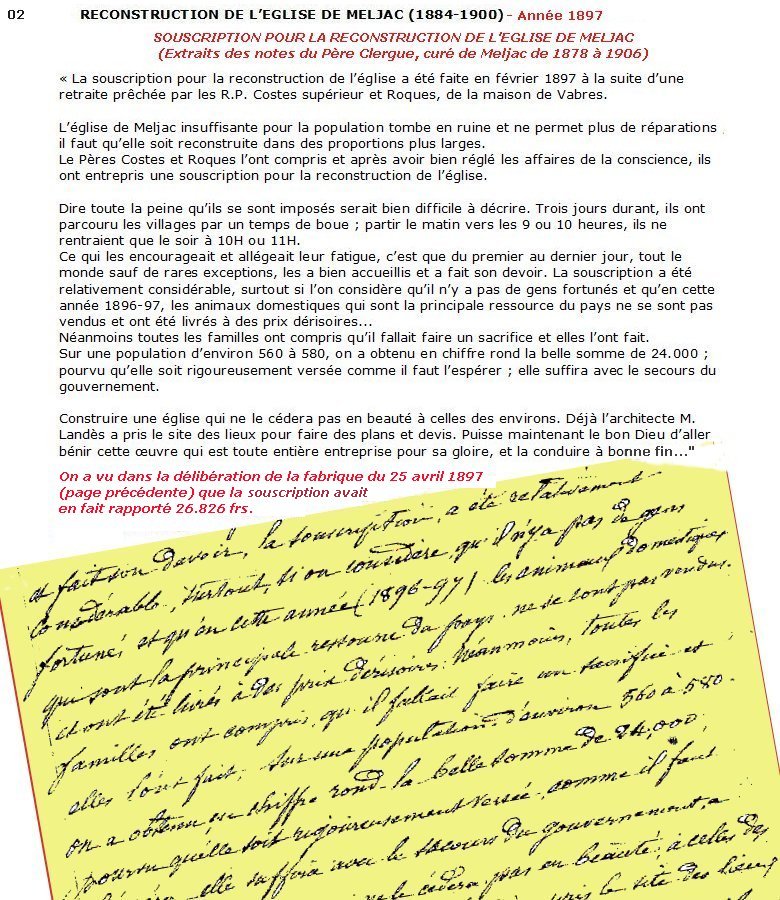 02 RECONSTRUCTION DE L’EGLISE DE MELJAC (1884-1900) - Année 1897
SOUSCRIPTION POUR LA RECONSTRUCTION DE L'EGLISE DE MELJAC
(Extraits des notes du Père Clergue, curé de Meljac de 1878 à 1906)
« La souscription pour la reconstruction de l’église a été faite en février 1897 à la suite d’une
retraite prêchée par les R.P. Costes supérieur et Roques, de la maison de Vabres.
L’église de Meljac insuffisante pour la population tombe en ruine et ne permet plus de réparations ;
il faut qu’elle soit reconstruite dans des proportions plus larges.
Le Pères Costes et Roques l’ont compris et après avoir bien réglé les affaires de la conscience, ils
ont entrepris une souscription pour la reconstruction de l’église.
Dire toute la peine qu’ils se sont imposés serait bien difficile à décrire. Trois jours durant, ils ont
parcouru les villages par un temps de boue ; partir le matin vers les 9 ou 10 heures, ils ne
rentraient que le soir à 10H ou 11H.
Ce qui les encourageait et allégeait leur fatigue, c’est que du premier au dernier jour, tout le
monde sauf de rares exceptions, les a bien accueillis et a fait son devoir. La souscription a été
relativement considérable, surtout si l’on considère qu’il n’y a pas de gens fortunés et qu’en cette
année 1896-97, les animaux domestiques qui sont la principale ressource du pays ne se sont pas
vendus et ont été livrés à des prix dérisoires...
Néanmoins toutes les familles ont compris qu’il fallait faire un sacrifice et elles l’ont fait.
Sur une population d’environ 560 à 580, on a obtenu en chiffre rond la belle somme de 24.000 ;
pourvu qu’elle soit rigoureusement versée comme il faut l’espérer ; elle suffira avec le secours du
gouvernement.
Construire une église qui ne le cédera pas en beauté à celles des environs. Déjà l’architecte M.
Landès a pris le site des lieux pour faire des plans et devis. Puisse maintenant le bon Dieu d’aller
bénir cette œuvre qui est toute entière entreprise pour sa gloire, et la conduire à bonne fin..."
On a vu dans la délibération de la fabrique du 25 avril 1897
(page précédente) que la souscription avait
en fait rapporté 26.826 frs.
et fait son devoir, la souscription, a été relativement
considérable, surtout, si on considère, qu'il n'y a pas de gens
fortunés et qu'en cette année (1896-97) les animaux domestiques
qui sont la principale ressource du pays ne se sont pas vendus.
et ont été livrés à des prix dérisoires. Néanmoins, toutes les
familles ont compris, qu'il fallait faire un sacrifice et
elles l'ont fait. Sur une population d'environ 560 à 580.
on a obtenu, en chiffre rond la belle somme de 24,000,
pourvu qu'elle soit rigoureusement versée, comme il faut
elle suffira avec le secours du gouvernement, a
ne le cédera, pas en beauté, à celles des
pris le site des lieux